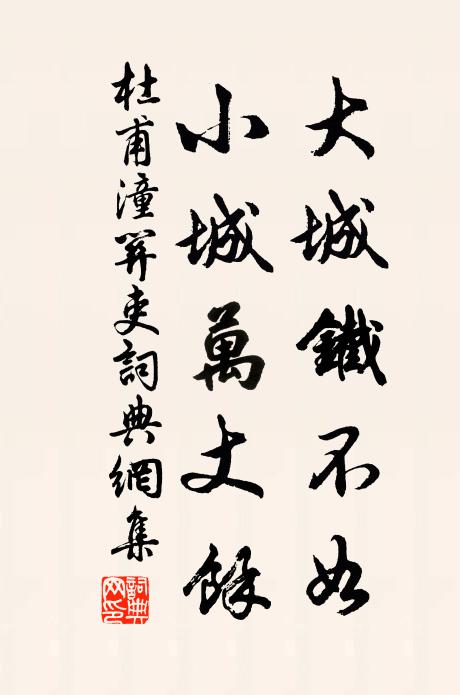 大城鐵不如
小城萬丈餘
杜甫潼關吏詞典網集
詞典網印